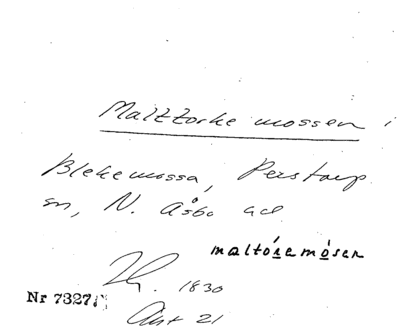 Maltzorke mossen i
Blekemossa, Perstorp
sn, N. Åsbo hd
maltóremósen
1830
Nr 7327.
Akt 21